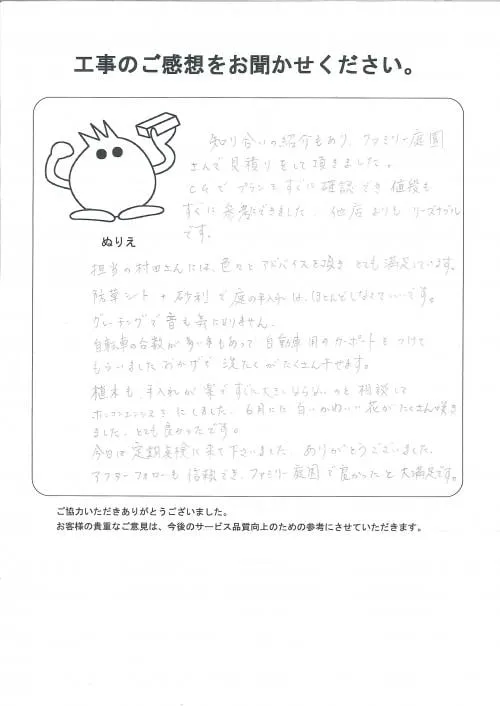 工事のご感想をお聞かせください。
ぬりえ
知り合いの紹介もあり、ファミリー庭園
さんで見積りをして頂きました。
CGでプランをすぐに確認でき値段も
すぐに参考にできました。他店よりもリーズナブル
です。
担当の村田さんには、色々とアドバイスを頂きとても満足しています。
防草シート+砂利で庭の手入れは、ほとんどしなくていいです。
グレーチングで音も気になりません。
自転車の台数が多い事もあって自動車用のカーポートをつけて
もらいましたおかげで洗たくがたくさん干せます。
植木も、手入れが楽ですぐに大きくならないのを相談して
ホンコンエンシスきにしました。6月には白いかわいい花がたくさん咲き
ました。とても良かったです。
今日は定期点検に来て下さいました。ありがとうございました。
アフターフォローも信頼でき、ファミリー庭園で良かったと大満足です。
ご協力いただきありがとうございました。
お客様の貴重なご意見は、今後のサービス品質向上のための参考にさせていただきます。